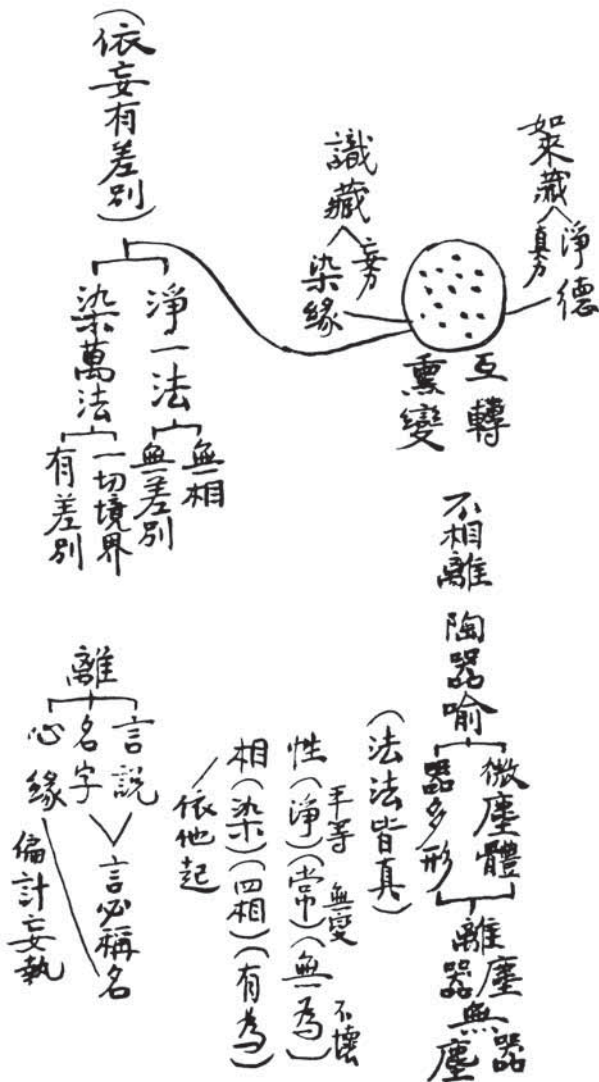 如來藏
淨德
真力
識藏
染緣
妄力
互轉
熏變
(依妄有差別)
淨一法
無相
無差別
染萬法
一切境界
有差別
不相離
陶器喻
微塵體
器多形
離塵無器
離器無塵
(法法皆真)
平等 無變 不壞
性(淨)(常)(無為)
相(染)(四相)(有為)
依他起
離
言說
名字
心緣
言必稱名
偏計妄執